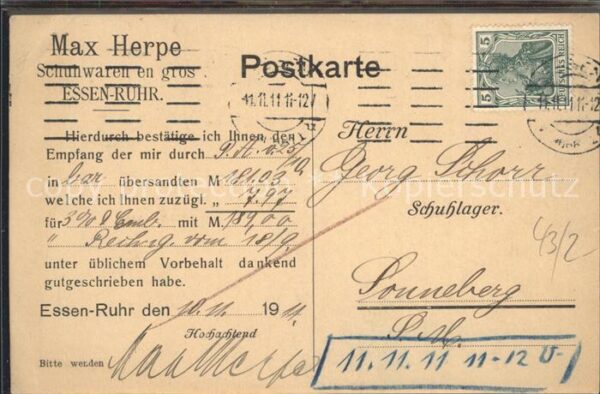 Max Herpe
Schuhwaren en gros
ESSEN-RUHR.
Postkarte
5
5
DEUTSCHES REICH
11.11.11 11-12V
Hierdurch bestätige ich Ihnen den
Empfang der mir durch P.A. v. 25/10
in bar übersandten M 181,03
welche ich Ihnen zuzügl. „ 7.97
für 3% & Emb. mit M. 189,00
" vom 18/9
unter üblichem Vorbehalt dankend
gutgeschrieben habe.
Essen-Ruhr den 10.11. 1911.
Hochachtend
Bitte wenden
Max Herpe
Herrn
Georg Schorr
Schuhlager.
43/2-
Sonneberg
S.M.
11.11.11 11-12 V-